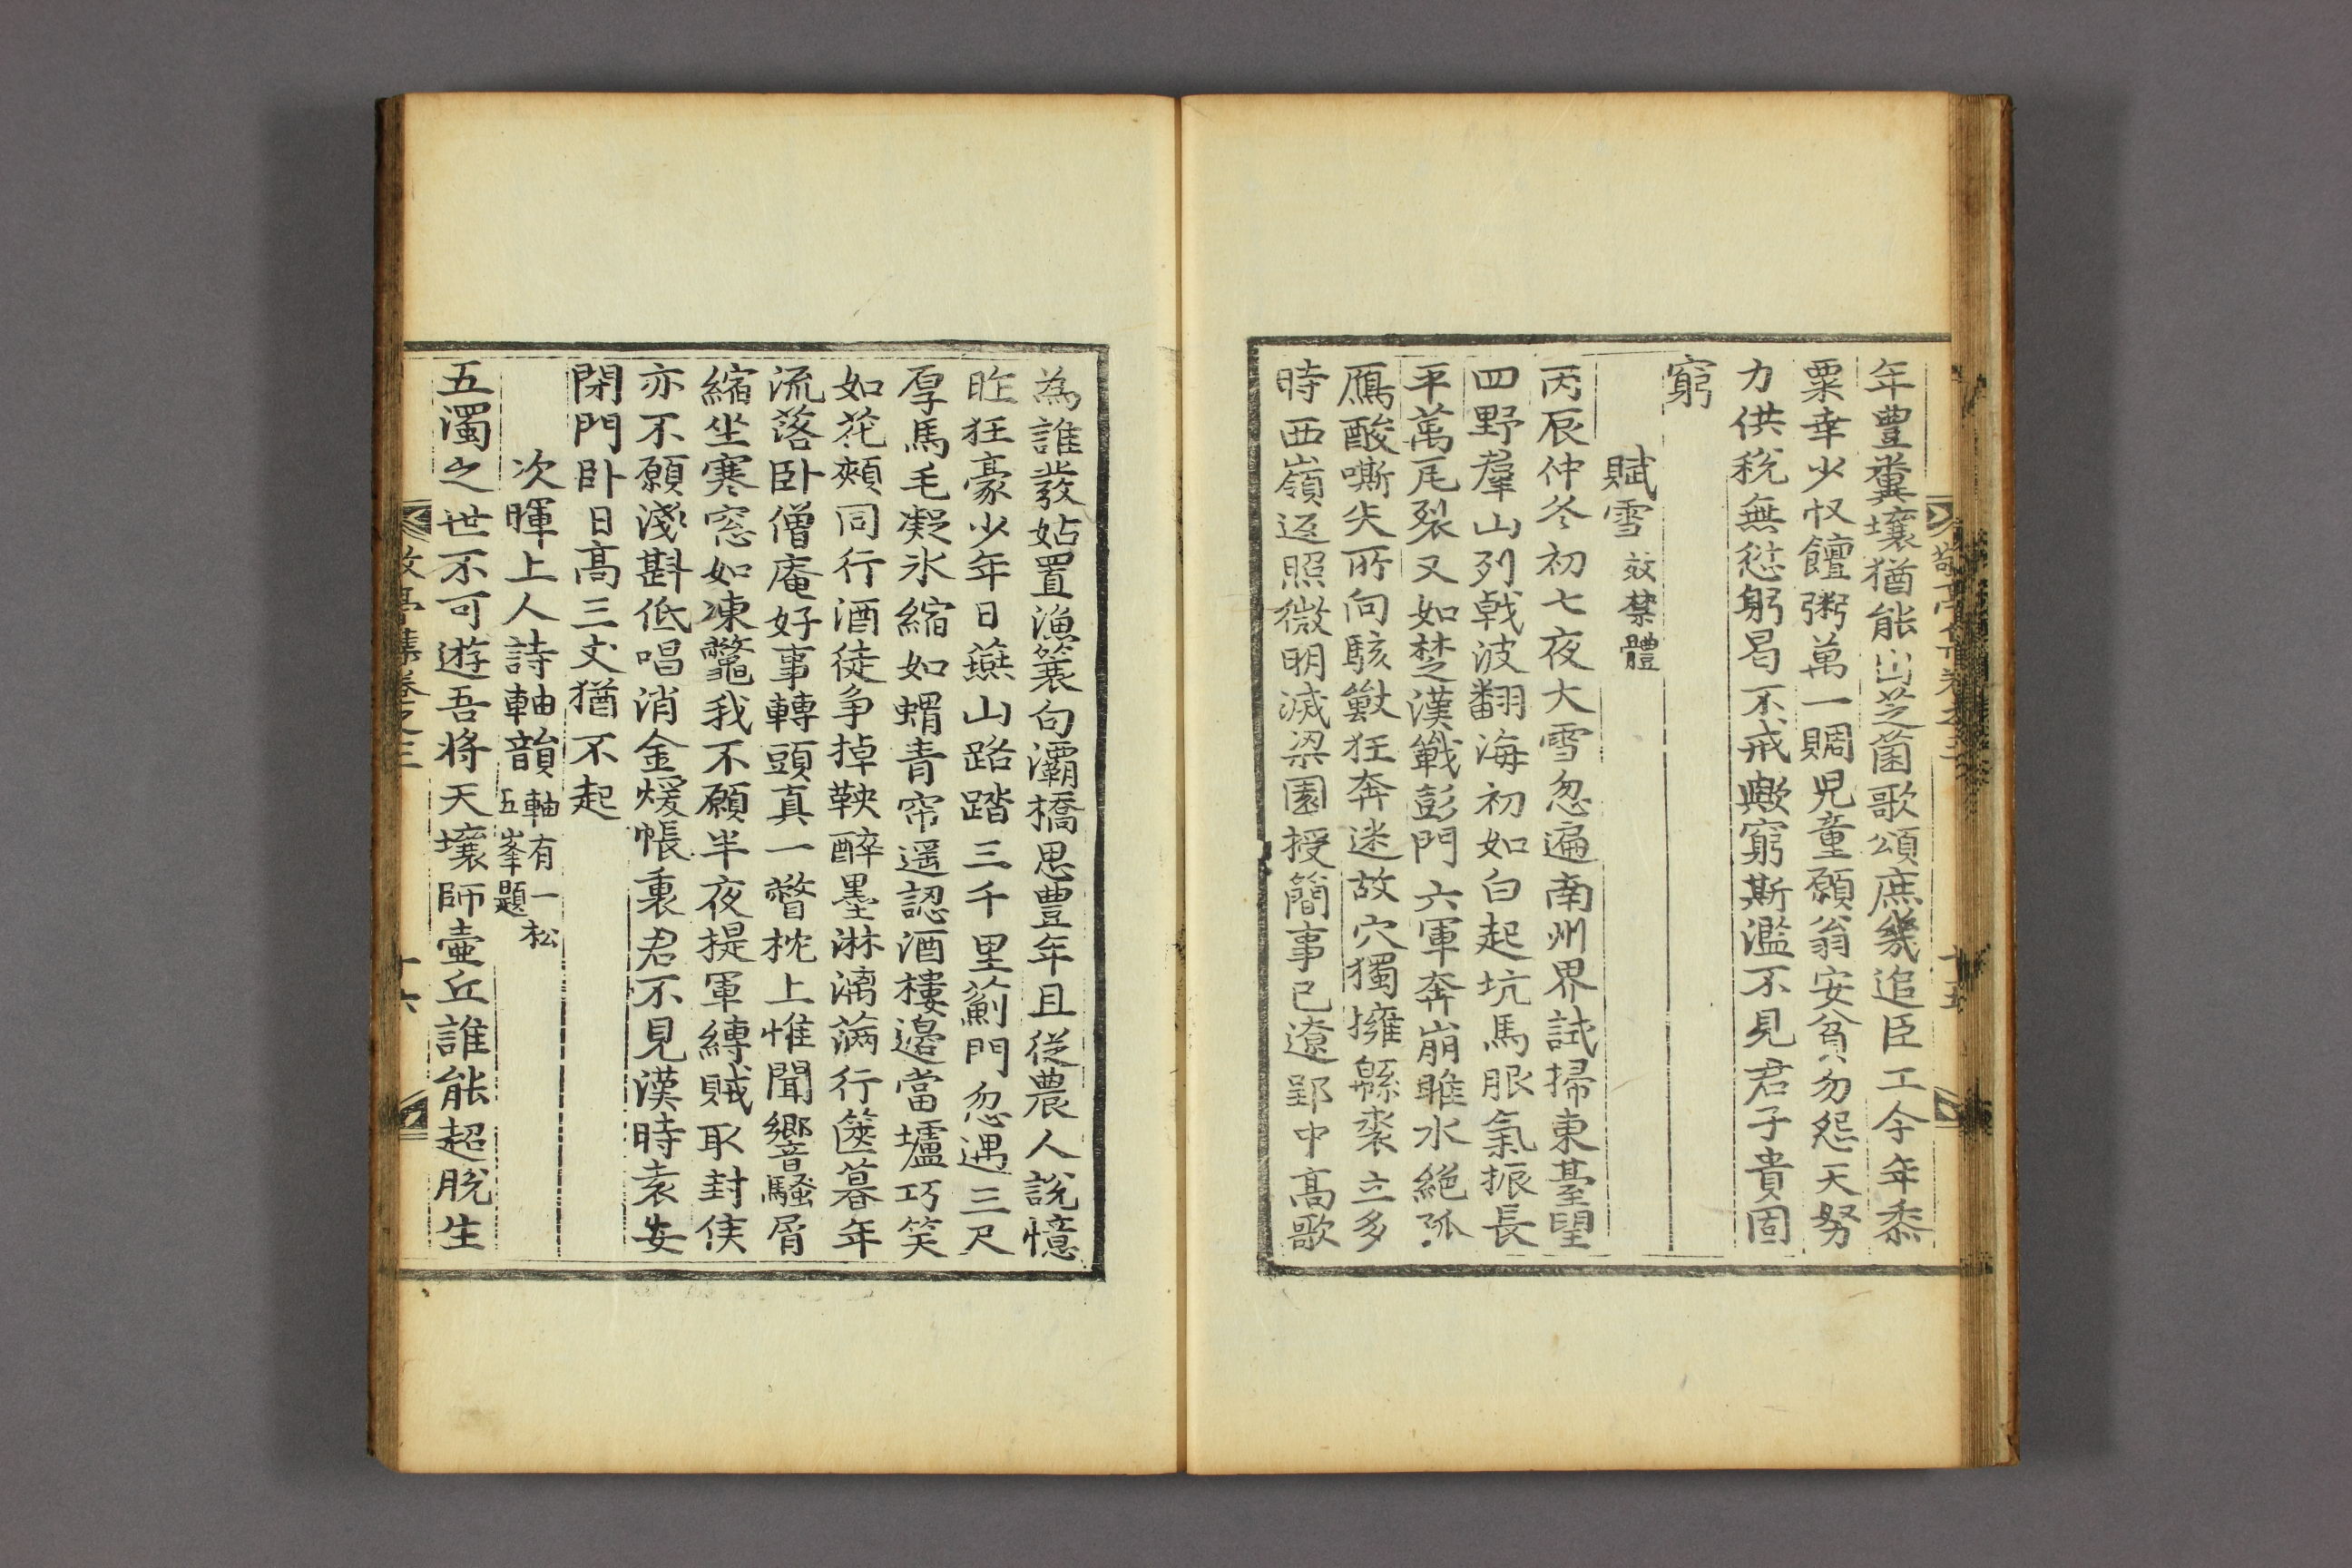 年豊糞壤猶能出芝菌歌頌庶幾追臣工今年黍
粟幸少收饘粥萬一賙兒童願翁安貧勿怨天努
力供稅無愆躬曷不戒歟窮斯濫不見君子貴固
窮
賦雪 效禁體
丙辰仲冬初七夜大雪忽遍南州界試掃東臺望
四野羣山列戟波翻海初如白起坑馬服氣振長
平萬瓦裂又如楚漢戰彭門六軍奔崩睢水絶孤
鴈酸嘶失所向駭獸狂奔迷故穴獨擁緜裘立多
時西嶺返照微明滅梁園授簡事已遼郢中高歌
為誰發姑置漁簑句灞橋思豊年且從農人說憶
昨狂豪少年日燕山路踏三千里薊門忽遇三尺
厚馬毛凝氷縮如蝟青帘遥認酒樓邉當壚巧笑
如花頰同行酒徒争掉鞅醉墨淋漓满行篋暮年
流落卧僧庵好事轉頭真一瞥枕上惟聞響騷屑
縮坐寒窓如凍鼈我不願半夜提軍縛賊取封侯
亦不願淺斟低唱消金煖帳裏君不見漢時袁安
閉門卧日高三丈猶不起
次暉上人詩軸韻 軸有一松
五峯題
五濁之世不可遊吾將天壤師壷丘誰能超脫生
敬亭集卷之三
十六